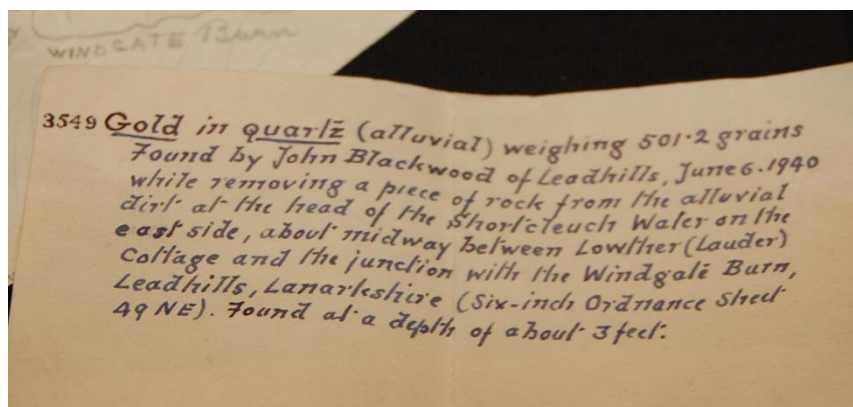 WINDGATE Burn
3549 Gold in quartz (alluvial) weighing 501·2 grains
Found by John Blackwood of Leadhills, June 6·1940
while removing a piece of rock from the alluvial
dirt at the head of the Shortcleuch Water on the
east side, about midway between Lowther (Lauder)
Cottage and the junction with the Windgate Burn,
Leadhills, Lanarkshire (Six-inch Ordnance Sheet
49 NE). Found at a depth of about 3 feet.